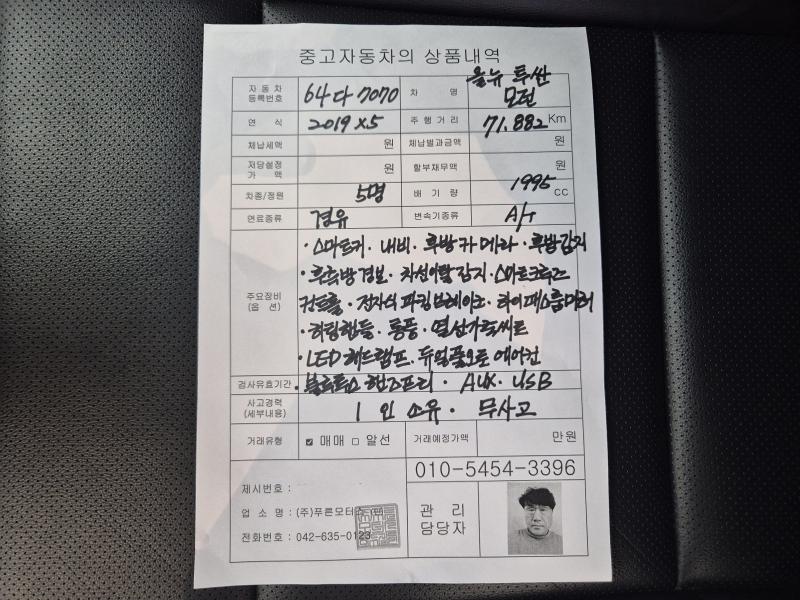 중고자동차의 상품내역
자 동 차 등록번호 64다7070 차 명 올뉴 투싼 모던
연 식 2019 X 5 주 행 거 리 71.882 Km
체납세액 원 체납벌과금액 원
저당설정 가 액 원 할부채무액 원
차종/정원 5명 배 기 량 1995 cc
연료종류 경유 변속기종류 A/T
주요장비 (옵 션)
· 스마트키 · 내비 · 후방카메라 · 후방감지
· 후측방경보 · 차선이탈감지 · 스마트크루즈
컨트롤 · 전자식 파킹브레이크 · 하이패스룸미러
· 히팅핸들 · 통풍 · 열선가죽씨트
· LED 헤드램프. 듀얼풀오토 에어컨
검사유효기간 · 블루투스 핸즈프리 · AUX · USB
사고경력 (세부내용) 1인 소유 · 무사고
거래유형 ☑ 매매 □ 알선 거래예정가액 만원
010-5454-3396
제시번호 :
업 소 명 : (주)푸른모터스
전화번호 : 042-635-0123
관 리 담당자